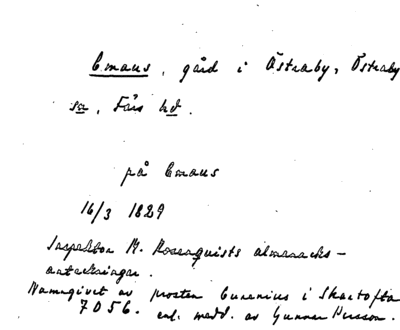 Emaus, gård i Östraby, Östraby
sn, Färs hd.
på Emaus
16/3 1829
Inspektor M. Rosenquists almanacks-
anteckningar.
Namngivet av prosten Curenius i Skartofta
enl. medd. av Gunnar Persson.
7056.